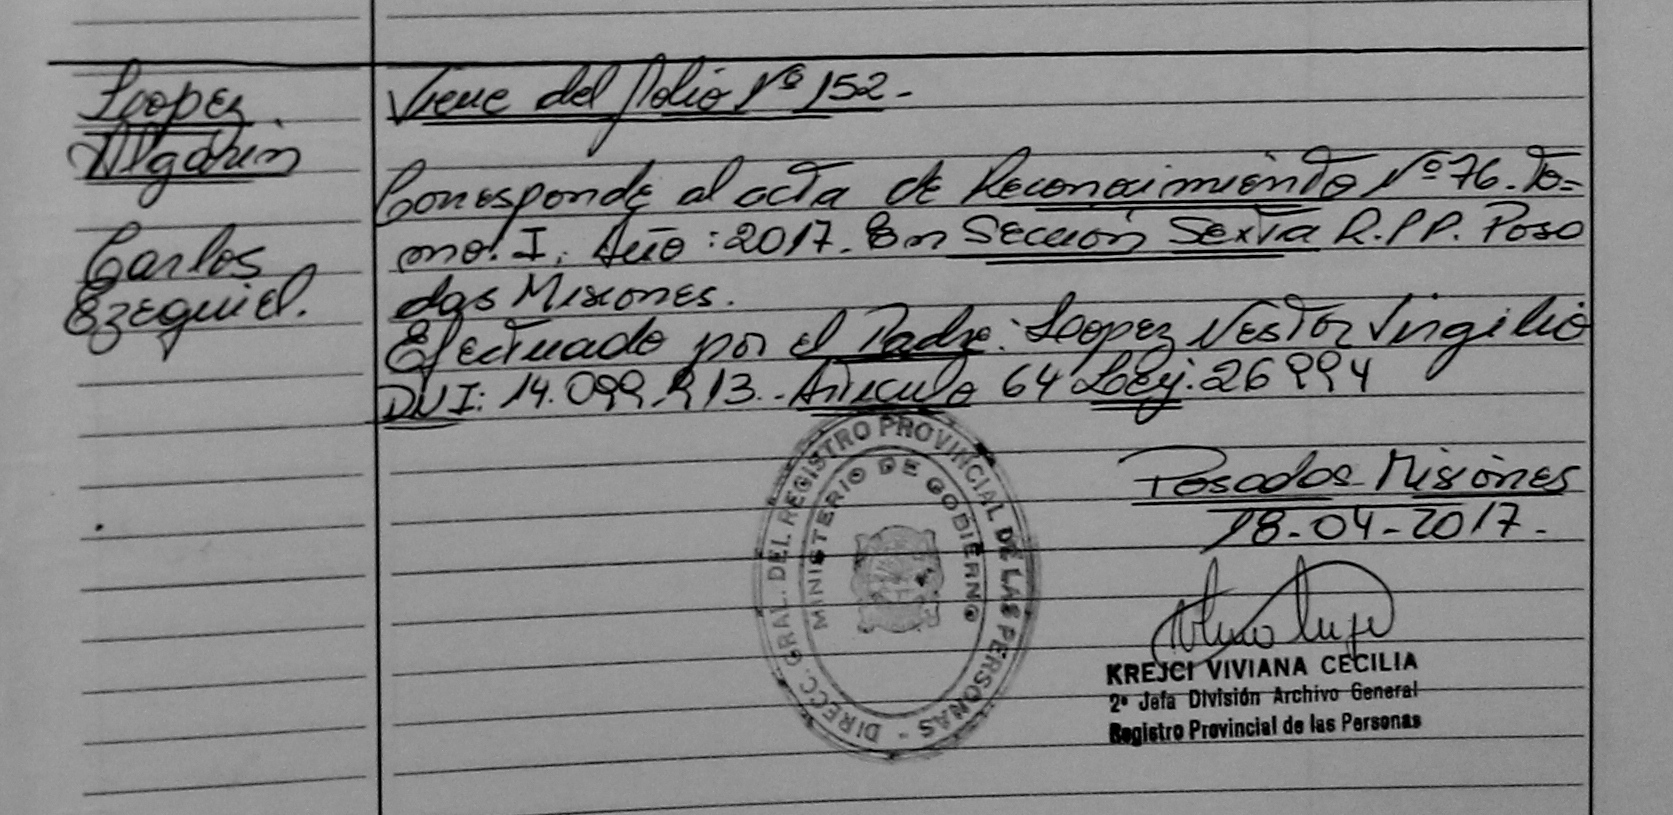 Lopez
Algarin
Carlos
Ezequiel.
Viene del folio Nº 152.-
Corresponde al acta de Reconocimiento Nº 76. To=
mo: I. Año: 2017. En Sección Sexta R.P.P. Posa
das Misiones.
Efectuado por el Padre: Lopez Nestor Virgilio
DNI: 14.099.913.- Artículo 64 Ley: 26994
Posadas Misiones
18-04-2017.-
DIRECC. GRAL. DEL REGISTRO PROVINCIAL DE LAS PERSONAS -
MINISTERIO DE GOBIERNO
KREJCI VIVIANA CECILIA
2º Jefa División Archivo General
Registro Provincial de las Personas